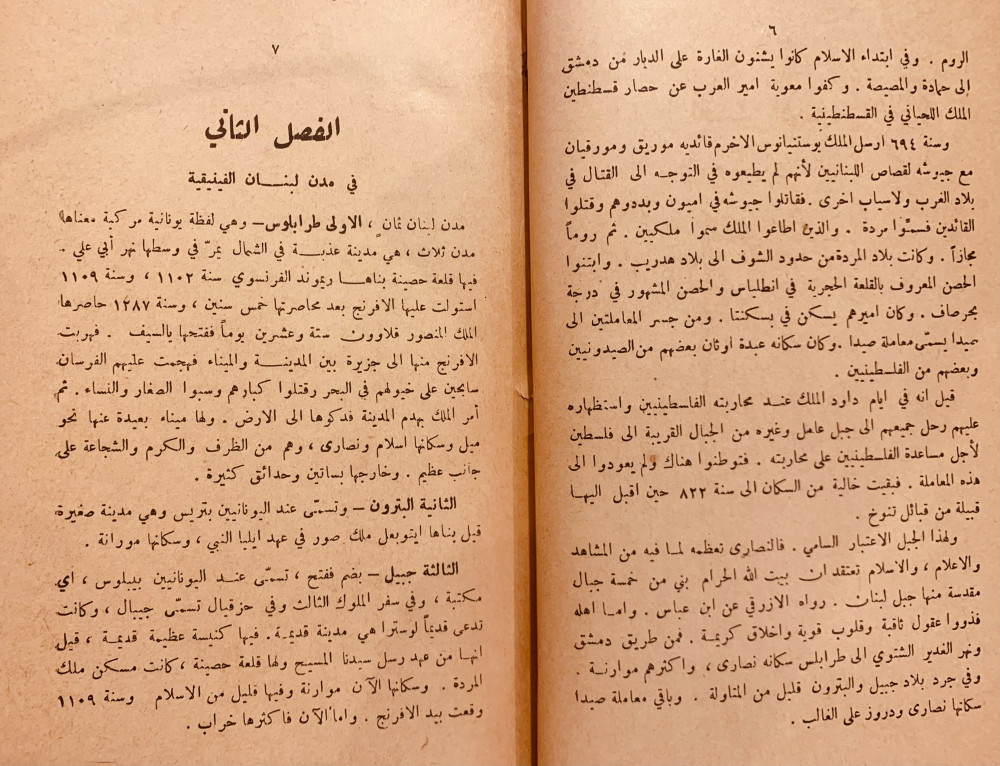 ٦
الروم . وفي ابتداء الاسلام كانوا يشنون الغارة على الديار من دمشق
الى حمادة والمصيصة . وكفوا معوية امير العرب عن حصار قسطنطين
الملك اللحياني في القسطنطينية .
وسنة ٦٩٤ ارسل الملك يوستنيانوس الاخرم قائديه موريق ومورقيان
مع جيوشه لقصاص اللبنانيين لأنهم لم يطيعوه في التوجه الى القتال في
بلاد الغرب ولاسياب اخرى . فقاتلوا جيوشه في اميون وبددوهم وقتلوا
القائدين فسمّوا مردة . والذين اطاعوا الملك سموا ملكيين . ثم روماً
مجازاً . وكانت بلاد المردة من حدود الشوف الى بلاد هدريب . وابتنوا
الحصن المعروف بالقلعة الحجرية في انطلياس والحصن المشهور في درجة
بحرصاف . وكان اميرهم يسكن في بسكنتا . ومن جسر المعاملتين الى
صيدا يسمّى معاملة صيدا . وكان سكانه عبدة اوثان بعضهم من الصيدونيين
وبعضهم من الفلسطينيين .
قيل انه في ايام داود الملك عند محاربته الفلسطينيين واستظهاره
عليهم رحل جميعهم الى جبل عامل وغيره من الجبال القريبة الى فلسطين
لأجل مساعدة الفلسطينيين على محاربته . فتوطنوا هناك ولم يعودوا الى
هذه المعاملة . فبقيت خالية من السكان الى سنة ٨٢٢ حين اقبل اليها
قبيلة من قبائل تنوخ .
ولهذا الجبل الاعتبار السامي . فالنصارى تعظمه لما فيه من المشاهد
والاعلام ، والاسلام تعتقد ان بيت الله الحرام بني من خمسة جبال
مقدسة منها جبل لبنان . رواه الازرقي عن ابن عباس . واما اهله
فذووا عقول ثاقبة وقلوب قوية واخلاق كريمة . فمن طريق دمشق
ونهر الغدير الشتوي الى طرابلس سكانه نصارى ، واكثرهم موارنة .
وفي جرد بلاد جبيل والبترون قليل من المتاولة . وباقي معاملة صيدا
سكانها نصارى ودروز على الغالب .
٧
الفصل الثاني
في مدن لبنان الفينيقية
مدن لبنان ثمان ، الاولى طرابلوس – وهي لفظة يونانية مركبة معناها
مدن ثلاث ، هي مدينة عذبة في الشمال يمرّ في وسطها نهر أبي علي .
فيها قلعة حصينة بناها ريموند الفرنسوي سنة ١١٠٢ ، وسنة ١١٠٩
استولت عليها الافرنج بعد محاصرتها خمس سنين ، وسنة ١٢٨٧ حاصرها
الملك المنصور قلاوون ستة وعشرين يوماً ففتحها بالسيف . فهربت
الافرنج منها الى جزيرة بين المدينة والميناء فهجمت عليهم الفرسان
سابحين على خيولهم في البحر رقتلوا كبارهم وسبوا الصغار والنساء . ثم
أمر الملك بهدم المدينة فدكوها الى الارض . ولها ميناء بعيدة عنها نحو
ميل وسكانها اسلام ونصارى ، وهم من الظرف والكرم والشجاعة على
جانب عظيم . وخارجها بساتين وحدائق كثيرة .
الثانية البترون – وتسمّى عند اليونانيين بتريس وهي مدينة صغيرة
قيل بناها ايتوبعل ملك صور في عهد ايليا النبي ، وسكانها مورانة .
الثالثة جبيل – بضم ففتح ، تسمّى عند اليونانيين بيبلوس ، أي
مكتبة ، وفي سفر الملوك الثالث وفي حزقيال تسمّى جيبال ، وكانت
تدعى قديماً لوسترا هي مدينة قديمة . فيها كنيسة عظيمة قديمة ، قيل
انها من عهد رسل سيدنا المسيح ولها قلعة حصينة ، كانت مسكن ملك
المردة . وسكانها الآن موارنة وفيها قليل من الاسلام وسنة ١١٠٩
وقعت بيد الافرنج . واما الآن فاكثرها خراب .